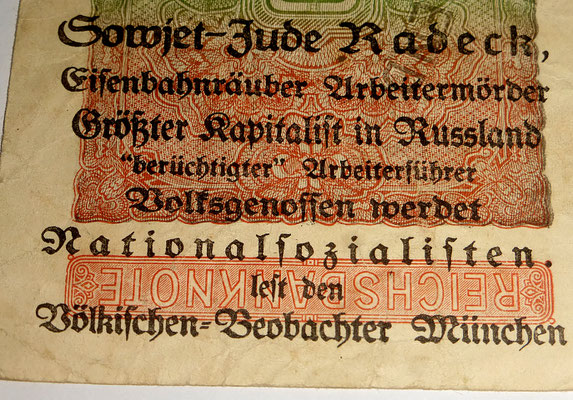 Sowjet-Jude Radeck,
Eisenbahnräuber Arbeitermörder
Größter Kapitalist in Russland
"berüchtigter" Arbeiterführer
Volksgenossen werdet
Nationalsozialisten.
lest den
REICHSBANKNOTE
Völkischen-Beobachter München